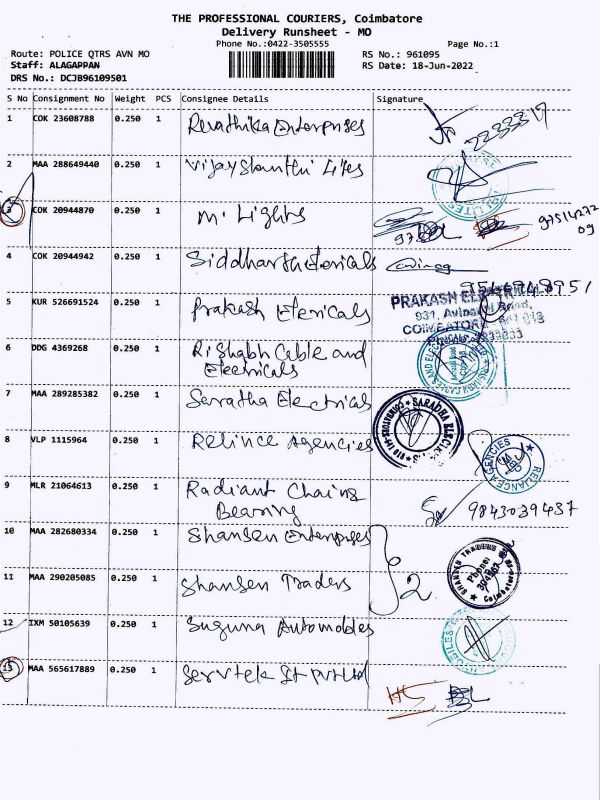 THE PROFESSIONAL COURIERS, Coimbatore
Delivery Runsheet - MO
Phone No.:0422-3505555 Page No.:1
Route: POLICE QTRS AVN MO RS No.: 961095
Staff: ALAGAPPAN RS Date: 18-Jun-2022
DRS No.: DCJB96109501
S No Consignment No Weight PCS Consignee Details Signature
1 COK 23608788 0.250 1 Revathika Enterprises
2 MAA 288649440 0.250 1 Vijayshanthi Lites
3 COK 20944870 0.250 1 M. Lights
4 COK 20944942 0.250 1 Siddharth Etericals
5 KUR 526691524 0.250 1 Prakash Etericals
PRAKASH
COIMBATORE
6 DDG 4369268 0.250 1 Rishabh Cable and
Electricals
7 MAA 289285382 0.250 1 Saratha Electricals
SARADHA
8 VLP 1115964 0.250 1 Relince Agencies
RELIANCE AGENCIES
9 MLR 21064613 0.250 1 Radiant Chains
Bearing 9843039437
10 MAA 282680334 0.250 1 Shansen Enterprises
2
SHANSEN TRADERS
Coimbatore
11 MAA 290205085 0.250 1 Shansen Traders
12 IXM 50105639 0.250 1 Suguna Automobles
13 MAA 565617889 0.250 1 Servtek St Pvt Ltd